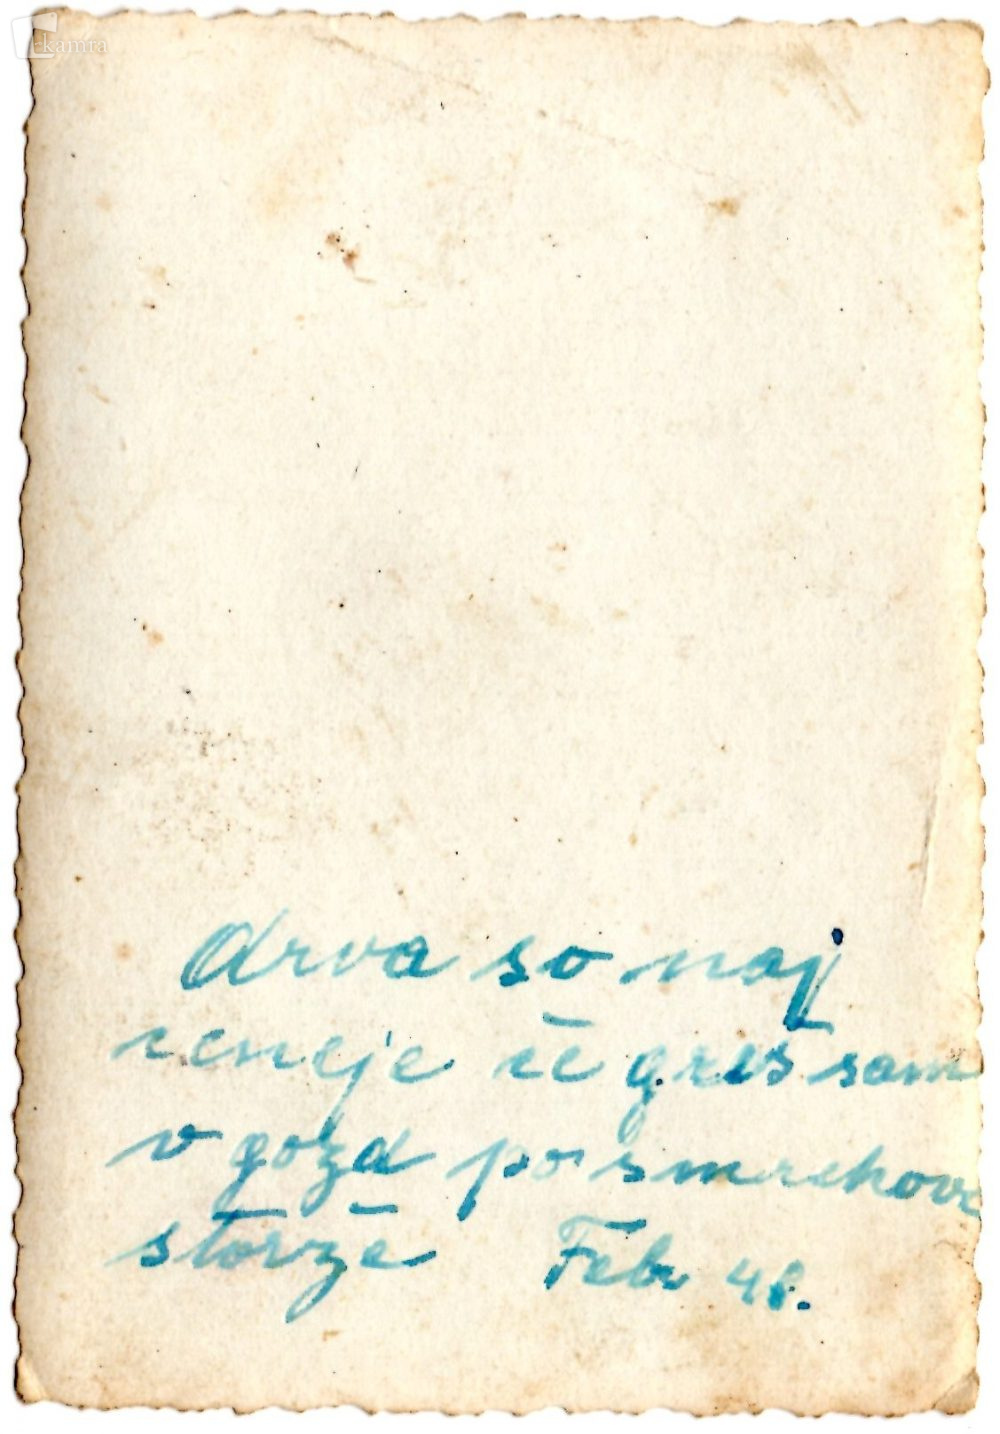 kamra
Drva so naj
ceneje če greš sam
v gozd po smrekove
storže Febr 48.